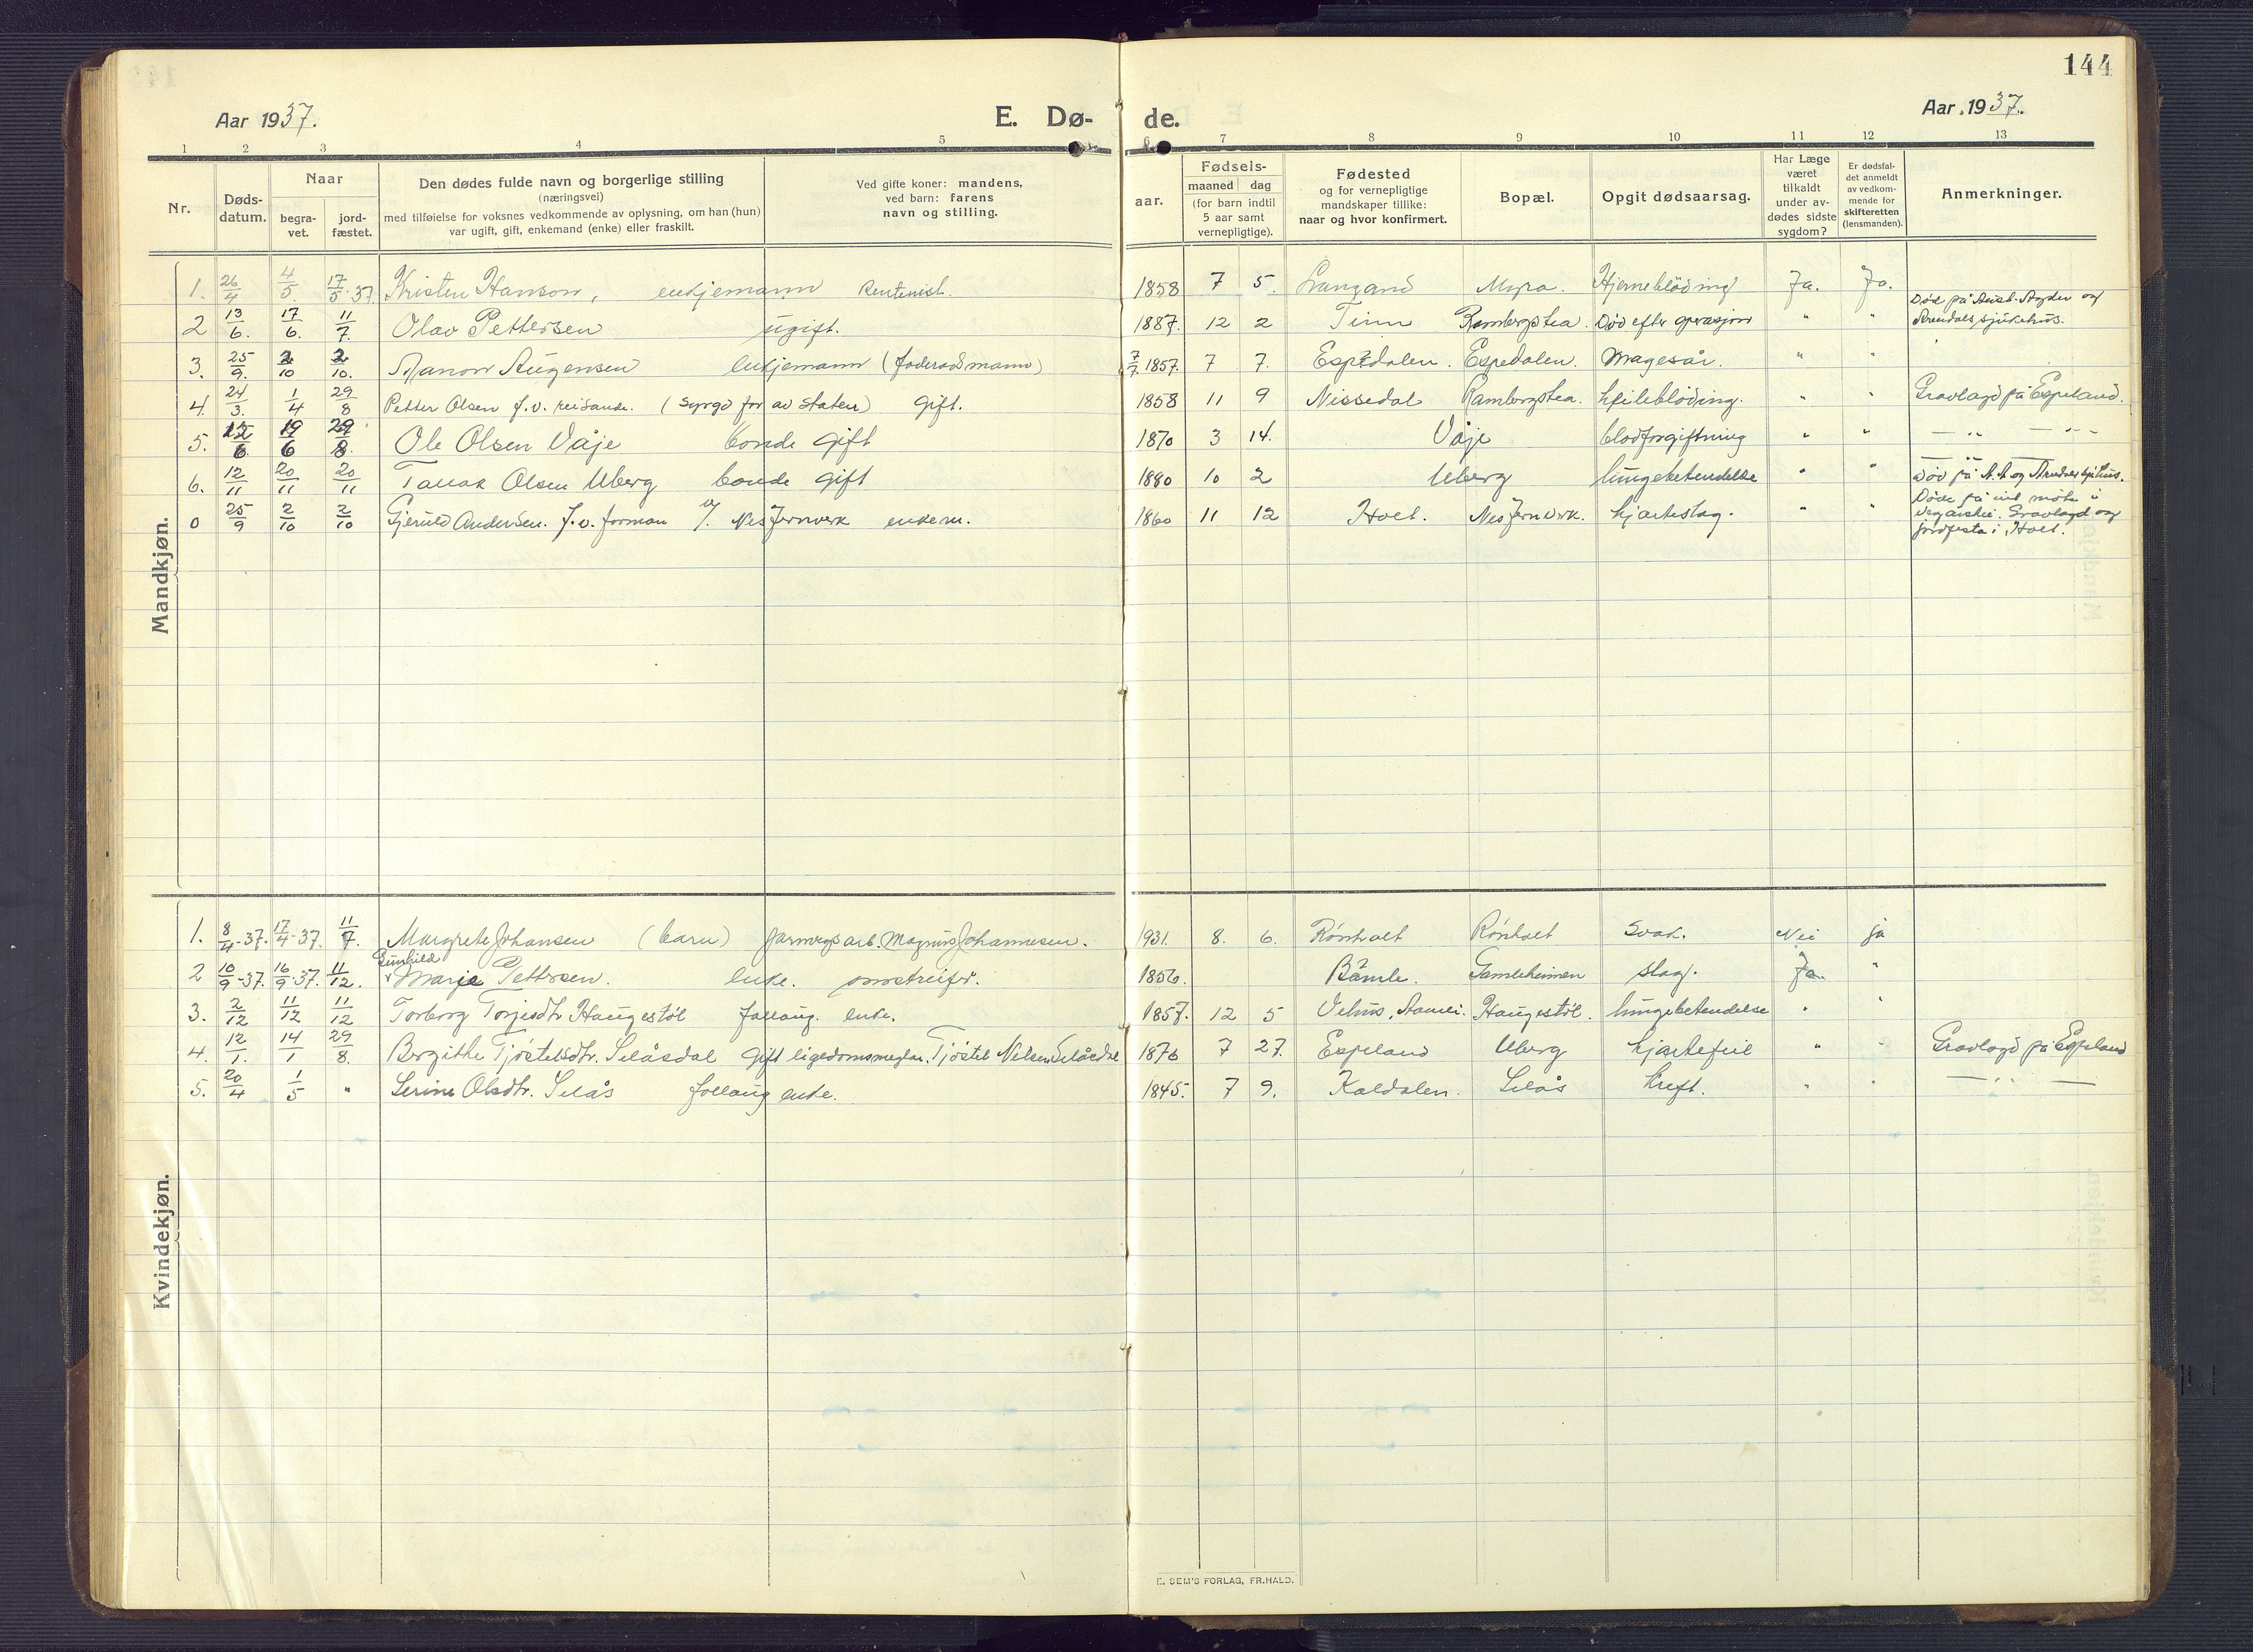 144
Aar 1937.
E. Dø-
de.
Aar 1937.
1 2 3 4 5 6 7 8 9 10 11 12 13
Nr.
Døds-
datum.
Naar
begra-
vet.
jord-
fæstet.
Den dødes fulde navn og borgerlige stilling
(næringsvei)
med tilføielse for voksnes vedkommende av oplysning, om han (hun)
var ugift, gift, enkemand (enke) eller fraskilt.
Ved gifte koner: mandens,
ved barn: farens
navn og stilling.
aar.
Fødsels-
maaned dag
(for barn indtil
5 aar samt
vernepligtige).
Fødested
og for vernepligtige
mandskaper tillike:
naar og hvor konfirmert.
Bopæl.
Opgit dødsaarsag.
Har Læge
været
tilkaldt
under av-
dødes sidste
sygdom?
Er dødsfal-
det anmeldt
av vedkom-
mende for
skifteretten
(lensmanden).
Anmerkninger.
Mandkjøn.
1. 26/4 4/5. 17/5-37 Kristen Hanson, enkjemann Rentenist. 1858 7 5. Langand Myra. Hjerneblöding Ja. Ja.
2 13/6. 17/6. 11/7. Olav Pettersen ugift. 1887. 12 2 Tinn Rambergstea. Död efter operasjon " " Död på Aust-Agder og
Arendals sjukehus.
3. 25/9. 2/10 2/10. Aanon Augensen Enkjemann (föderådsmann) 7/7. 1857. 7 7. Espedalen. Espedalen. Magesår. " "
4. 24/3. 1/4 29/8 Petter Olsen f.v. reisande. (syrgd for av staten) Gift. 1858 11 9 Nissedal Rambergstea. heileblöding. " " Gravlagd på Espeland.
5. 12/6 19/6 29/8. Ole Olsen Våje bonde gift 1870 3 14. Våje blodforgiftning " " — " — " —
6. 12/11 20/11 20/11 Tallak Olsen Uberg bonde gift 1880 10 2 Uberg lungebetendelse " " Död på A.A og Arendal sjukhus.
0 25/9 2/10 2/10 Gjeruld Andersen. f.v. forman v/. Nes Jernverk enkem. 1860 11 12 Holt. Nes Jernverk. hjarteslag. " " Døde på eit möte i
Vegårshei. Gravlagd og
jordfesta i Holt.
Kvindekjøn.
1. 8/4-37. 17/4-37. 11/7. Margrete Johansen (barn) Jarnvegsarb. Magnus Johannesen. 1931. 8. 6. Rönholt Rönholt Svak. Nei ja
Gunhild
2 10/9-37. 16/9-37. 11/12. Marje Pettersen. enke. omstreifer. 1856. Bamle. Gamleheimen slag. Ja. "
3. 2/12 11/12 11/12 Torborg Torjusdtr Haugestöl follaug. enke. 1857. 12 5 Vehus, Aamli. Haugestöl. lungebetendelse " "
4. 12/1. 14/1 29/8. Bergithe Tjöstelsdtr. Selåsdal Gift ligedomsmeglar. Tjöstel Nelsen Selåsdal 1876 7 27. Espeland Uberg hjartefeil " " Gravlagd på Espeland
5. 20/4 1/5 " Serine Olsdtr. Selås follaug enke. 1845. 7 9. Kaldalen. Selås kreft. " " — " —
E. SEM'S FORLAG, FR.HALD.